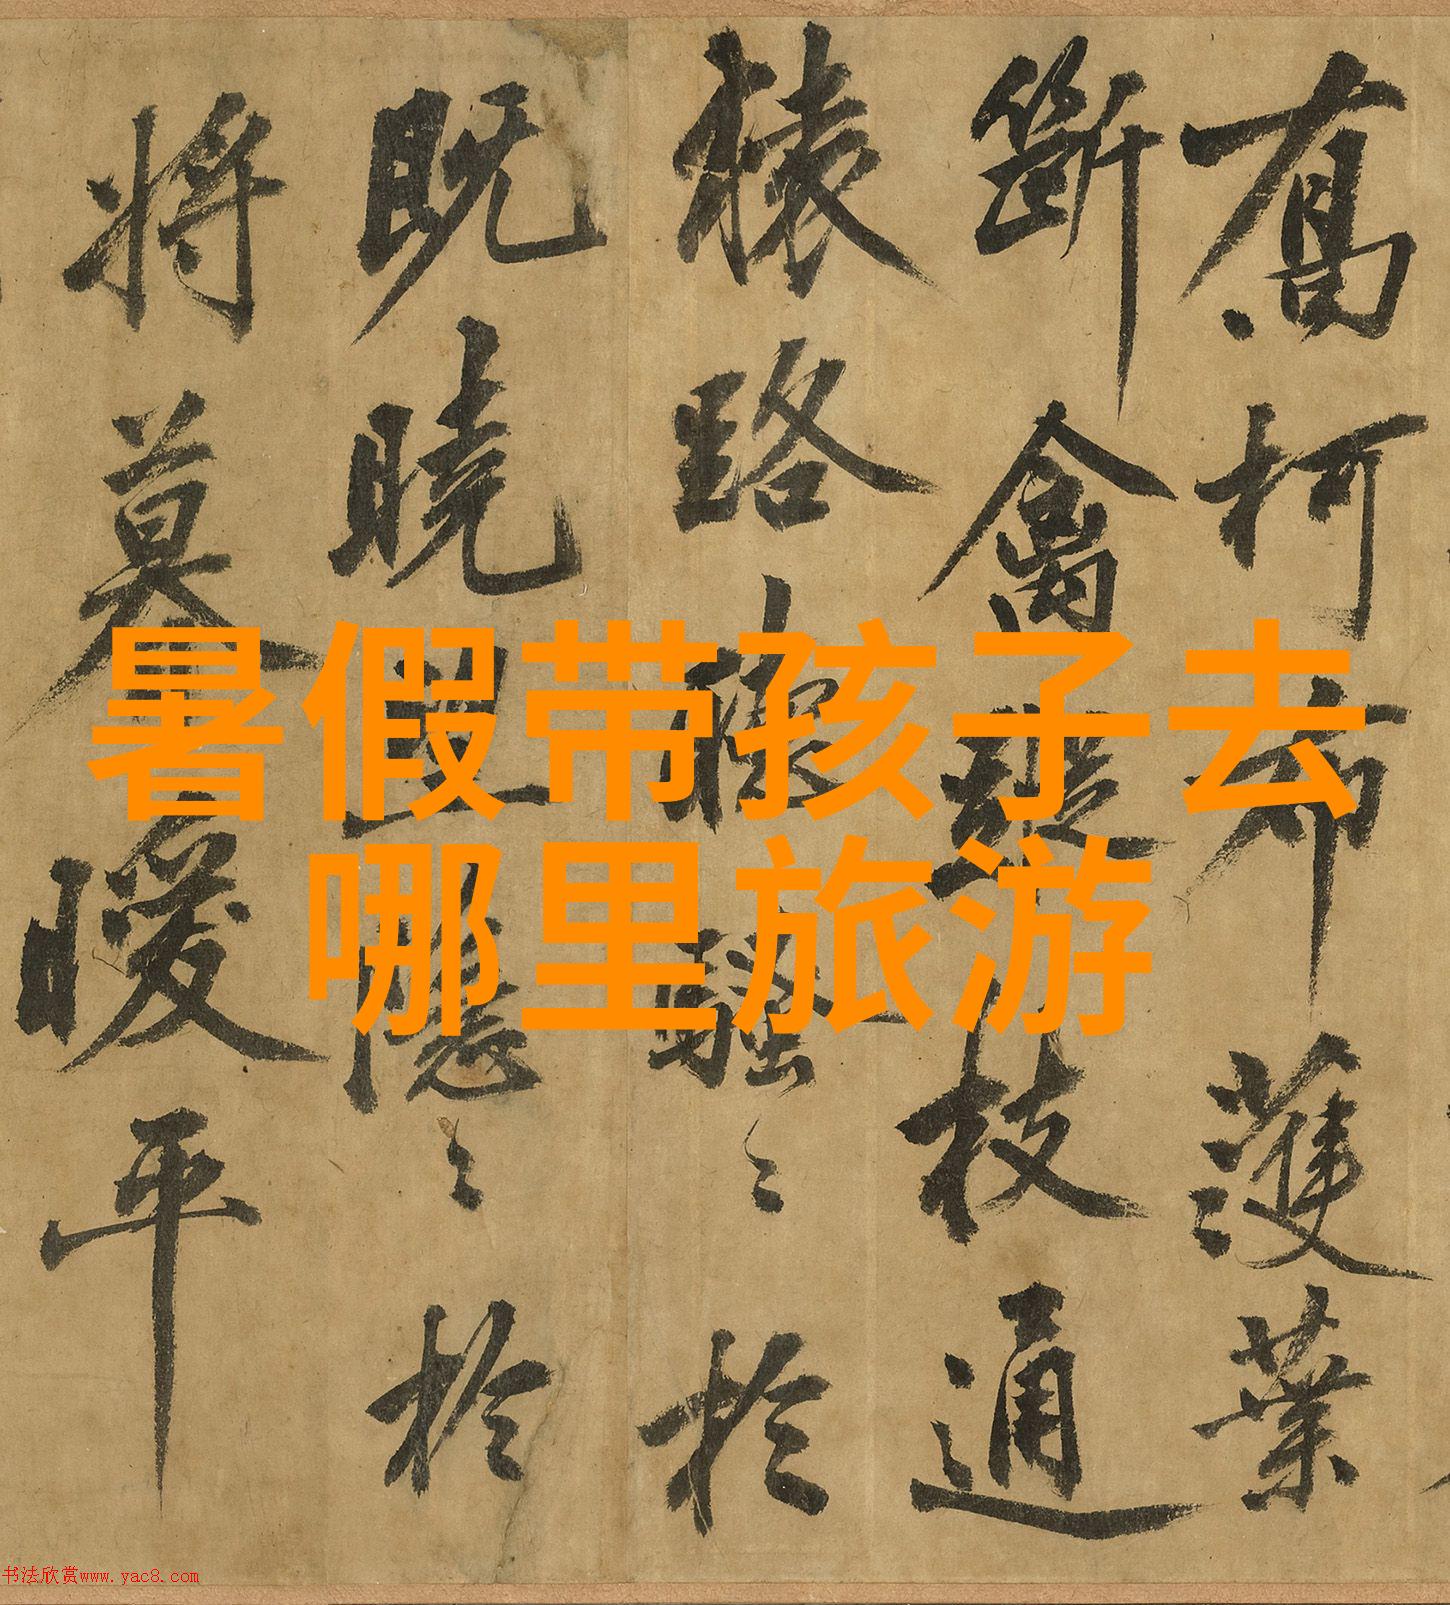 暑假带孩子去
哪里旅游
柯布護葉
斷禽枝通
猿路騷〻於
既曉且隱〻於
將暮曖平
书法欣赏www.yac8.com